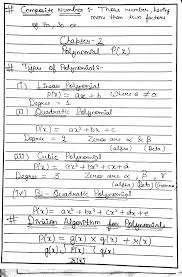 # Composite Number :- Those number, having
more than two factors
Chapter-2
Polynomial P(x)
# Types of Polynomials:-
(i) Linear Polynomial
P(x) = ax + b where a ≠ 0
Degree = 1
(ii) Quadratic Polynomial
P(x) = ax² + bx + c
Degree = 2 Zeros are α & β
(alpha) (beta)
(iii) Cubic Polynomial
P(x) = ax³ + bx² + cx + d
Degree = 3 Zeros are α, β, γ
(alpha) (beta) (Gamma)
(iv) Bi-Quadratic Polynomial
P(x) = ax⁴ + bx³ + cx² + dx + e
# Division Algorithm for Polynomials
P(x) = g(x) × q(x) + r(x)
g(x) P(x) q(x)